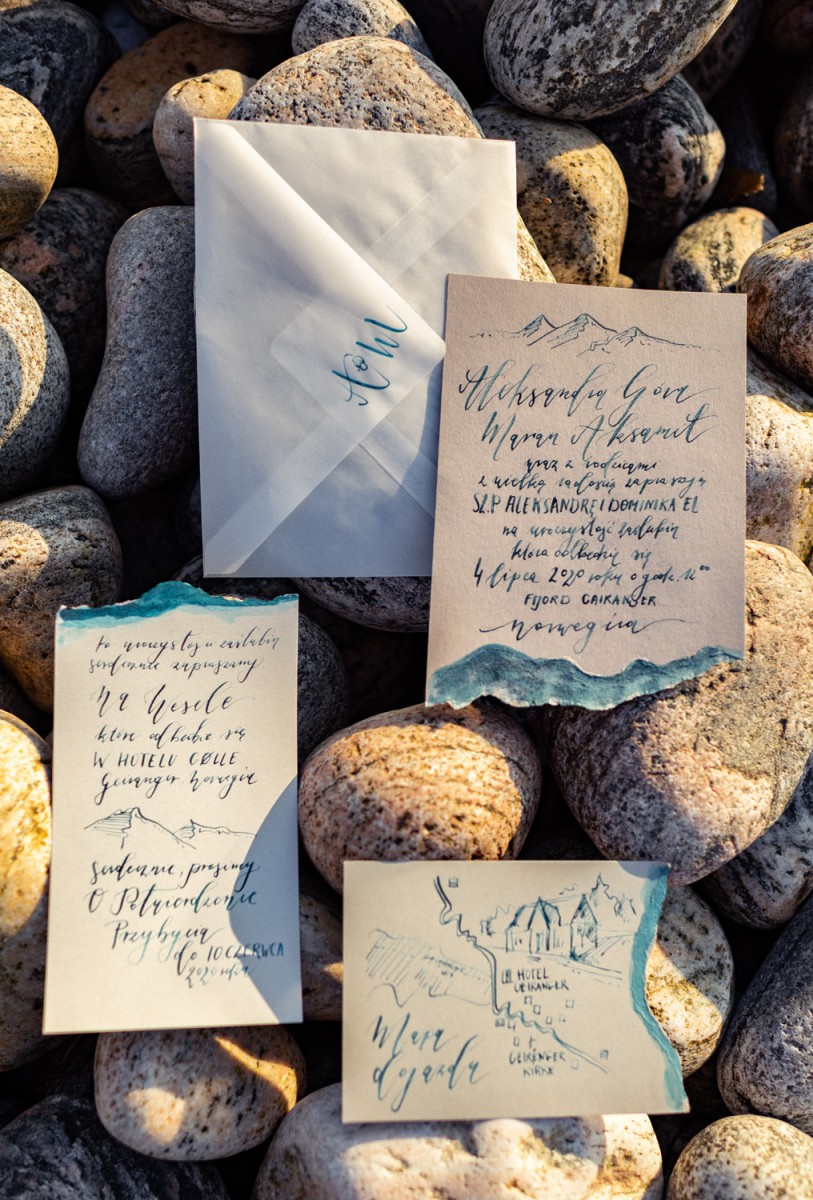 A & M
Aleksandra Góra
Maran Aksamit
wraz z rodzicami
z wielką radością zapraszają
SZ.P ALEKSANDRĘ I DOMINIKA EL
na uroczystość zaślubin
która odbędzie się
4 lipca 2020 roku o godz.
FJORD GAIRANGER
Norwegia
Po uroczystości zaślubin
serdecznie zapraszamy
Na Wesele
które odbędzie się
W HOTELU COLLE
Geiranger Norwegia
serdecznie prosimy
O Potwierdzenie
Przybycia
do 10 CZERWCA
2020 roku
HOTEL
GEIRANGER
GEIRANGER
KIRKE
Mapa
dojazdu